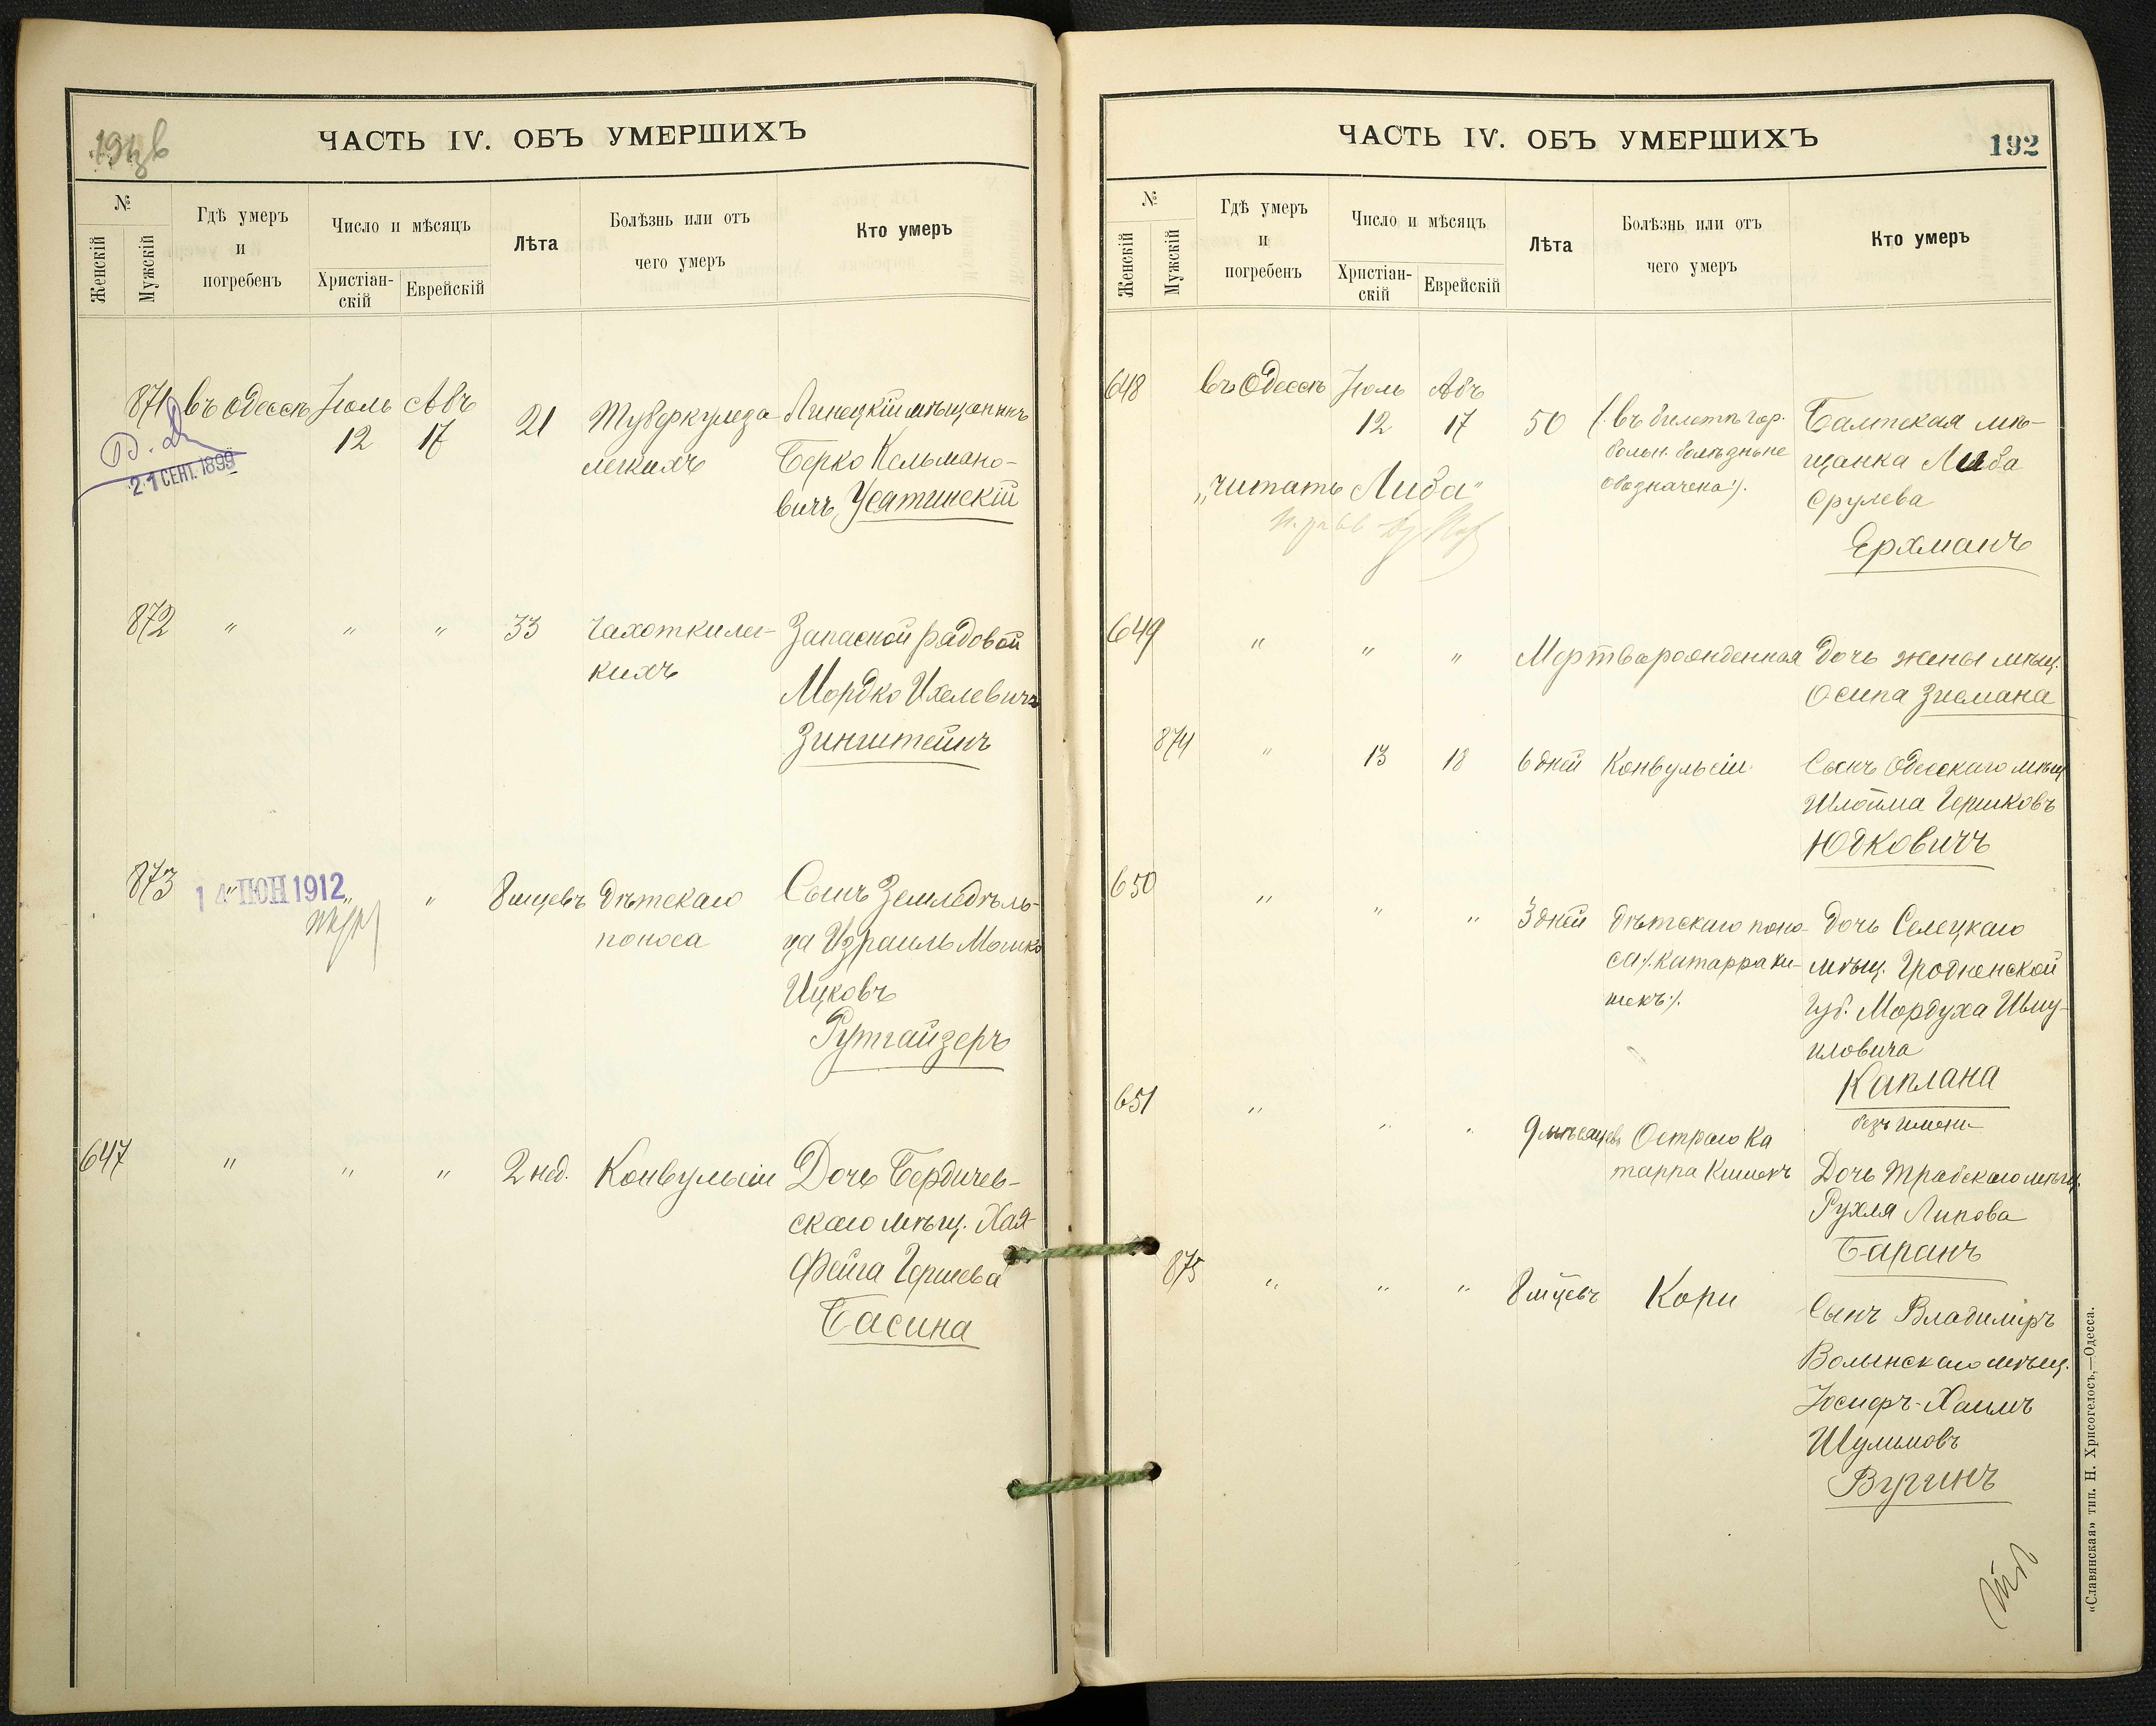 ЧАСТЬ IV. ОБЪ УМЕРШИХЪ
№
Женскій
Мужскій
Гдѣ умеръ
и
погребенъ
Число и мѣсяцъ
Христіан-
скій
Еврейскій
Лѣта
Болѣзнь или отъ
чего умеръ
Кто умеръ
871 въ Одессѣ Іюль Авъ
12 17 21 Туберкулеза
легкихъ
Линецкій мѣщанинъ
Берко Кельмано-
вичъ Усатинскій
21 СЕНТ. 1899
872 " " " 33 Чахотки лег-
кихъ
Запасной рядовой
Мордко Ихелевичъ
Зингштейнъ
873 " " " 8 мцевъ Дѣтскаго
поноса
14 ІЮН 1912
Сынъ Земледѣль-
ца Израиль Мошко
Ицковъ
Рутгайзеръ
647 " " " 2 нед. Конвульсіи
Дочь Бердичев-
скаго мѣщ. Хая
Фейга Гершева
Басина
ЧАСТЬ IV. ОБЪ УМЕРШИХЪ
192
№
Женскій
Мужскій
Гдѣ умеръ
и
погребенъ
Число и мѣсяцъ
Христіан-
скій
Еврейскій
Лѣта
Болѣзнь или отъ
чего умеръ
Кто умеръ
648 въ Одессѣ Іюль Авъ
12 17 50 (:въ билетѣ гор.
больн. болѣзнь не
обозначена:).
Балтская мѣ-
щанка Либа
Срулева
Ерхманъ
„читать Либа"
649 " " " Мертворожденная Дочь жены мѣщ.
Осипа Зисмана
874 " 13 18 6 дней Конвульсіи
Сынъ Одесскаго мѣщ
Шлойма Гершковъ
Юдковичъ
650 " " " 3 дней Дѣтскаго поно-
са /:катарра ки-
шекъ:/.
Дочь Селецкаго
мѣщ. Гродненской
Губ. Мордуха Шму-
иловича
Каплана
безъ имени
651 " " " 9 мѣсяцевъ Остраго Ка
тарра Кишекъ
Дочь Трабскаго мѣщ.
Рухля Липова
Баранъ
875 " " " 8 мцевъ Кори
Сынъ Владиміръ
Волынскаго мѣщ.
Іосифъ-Хаимъ
Шулимовъ
Вугинъ
«Славянская» тип. Н. Хрисогелосъ,—Одесса.